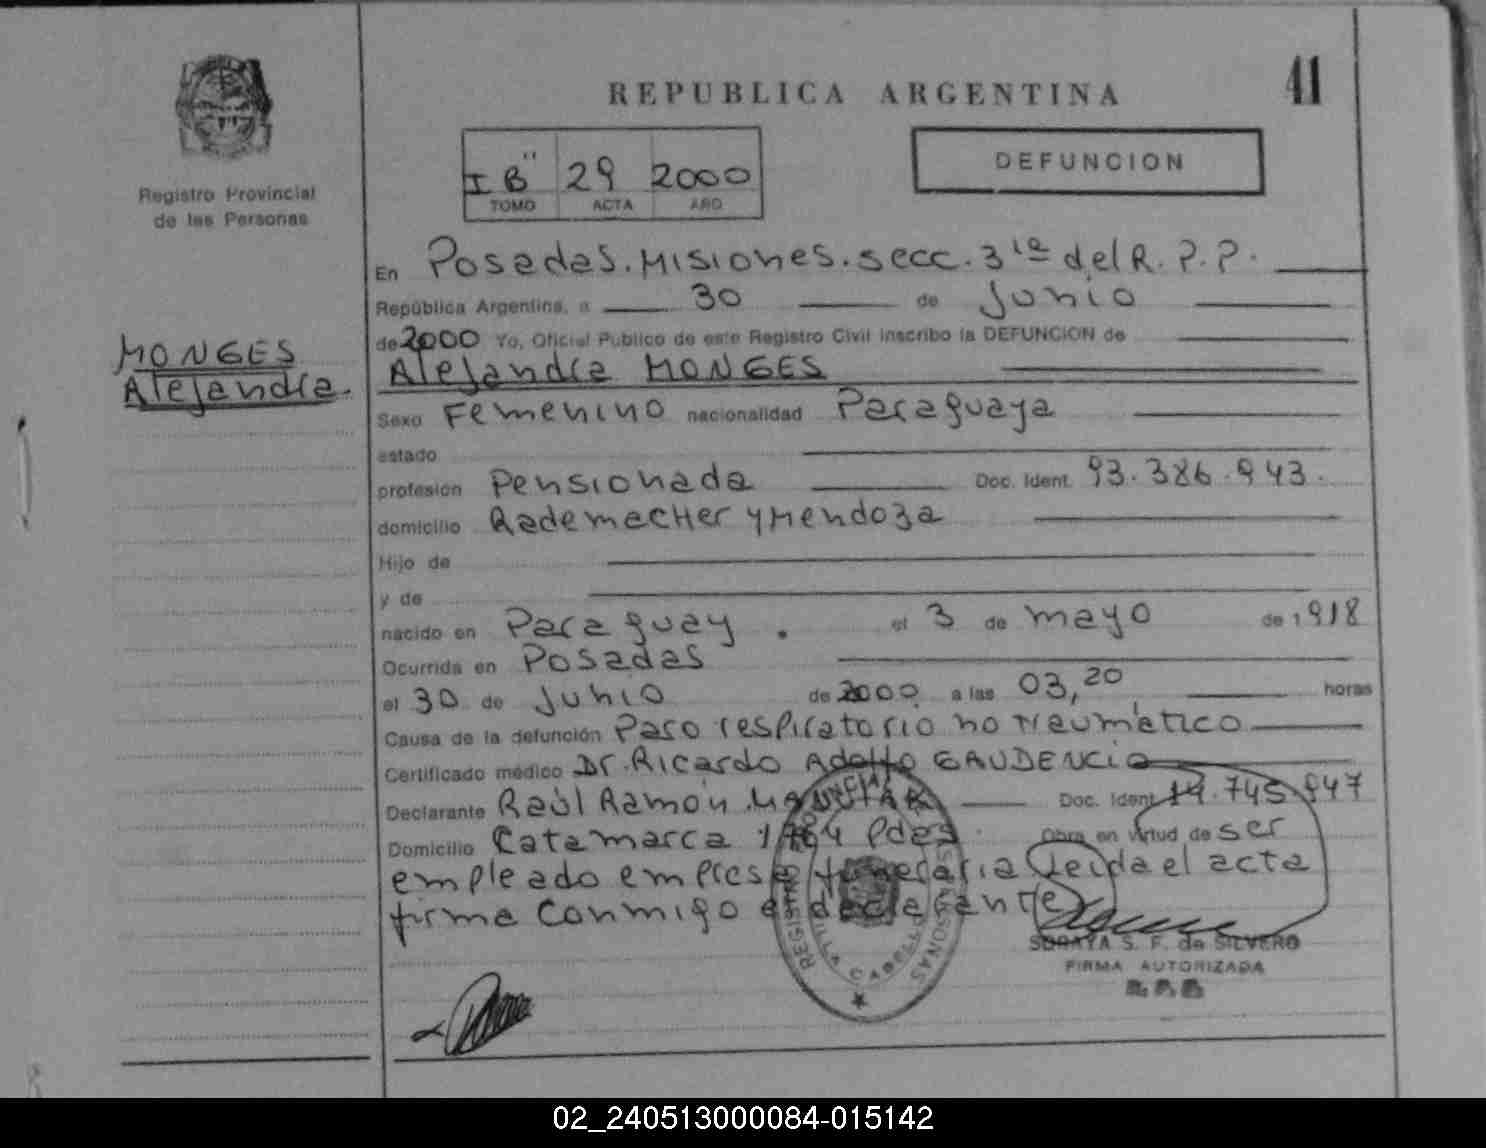 REPUBLICA ARGENTINA
41
Registro Provincial
de las Personas
I B" 29 2000
TOMO ACTA AÑO
DEFUNCION
MONGES
Alejandra.
En Posadas. Misiones. secc. 3ra del R. P. P.
República Argentina, a 30 de Junio
de 2000 Yo, Oficial Publico de este Registro Civil inscribo la DEFUNCION de
Alejandra MONGES
Sexo Femenino nacionalidad Paraguaya
estado
profesión Pensionada Doc. Ident. 93.386.943.
domicilio Rademacher y Mendoza
Hijo de
y de
nacido en Paraguay. el 3 de mayo de 1918
Ocurrida en Posadas
el 30 de Junio de 2000 a las 03,20 horas
Causa de la defunción Paro respiratorio no traumático
Certificado médico Dr. Ricardo Adolfo GAUDENCIO
Declarante Raúl Ramón Doc. Ident. 14.745.947
Domicilio Catamarca Pdas. Obra en virtud de ser
empleado empresa funeraria Leida el acta
firma conmigo el declarante
SORAYA S. F. de SILVERO
FIRMA AUTORIZADA
REGISTRO PERSONAS
VILLA CABELLO
02_240513000084-015142